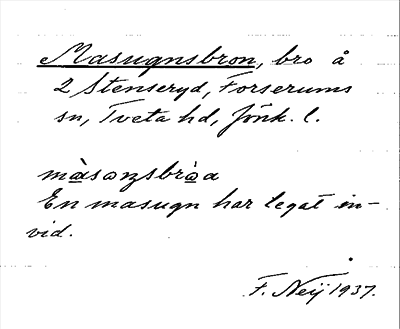 Masugnsbron, bro å
2 Stenseryd, Forserums
sn, Tveta hd, Jönk. l.
màsɷŋsbrò̱a
En masugn har legat in-
vid.
F. Neij 1937.